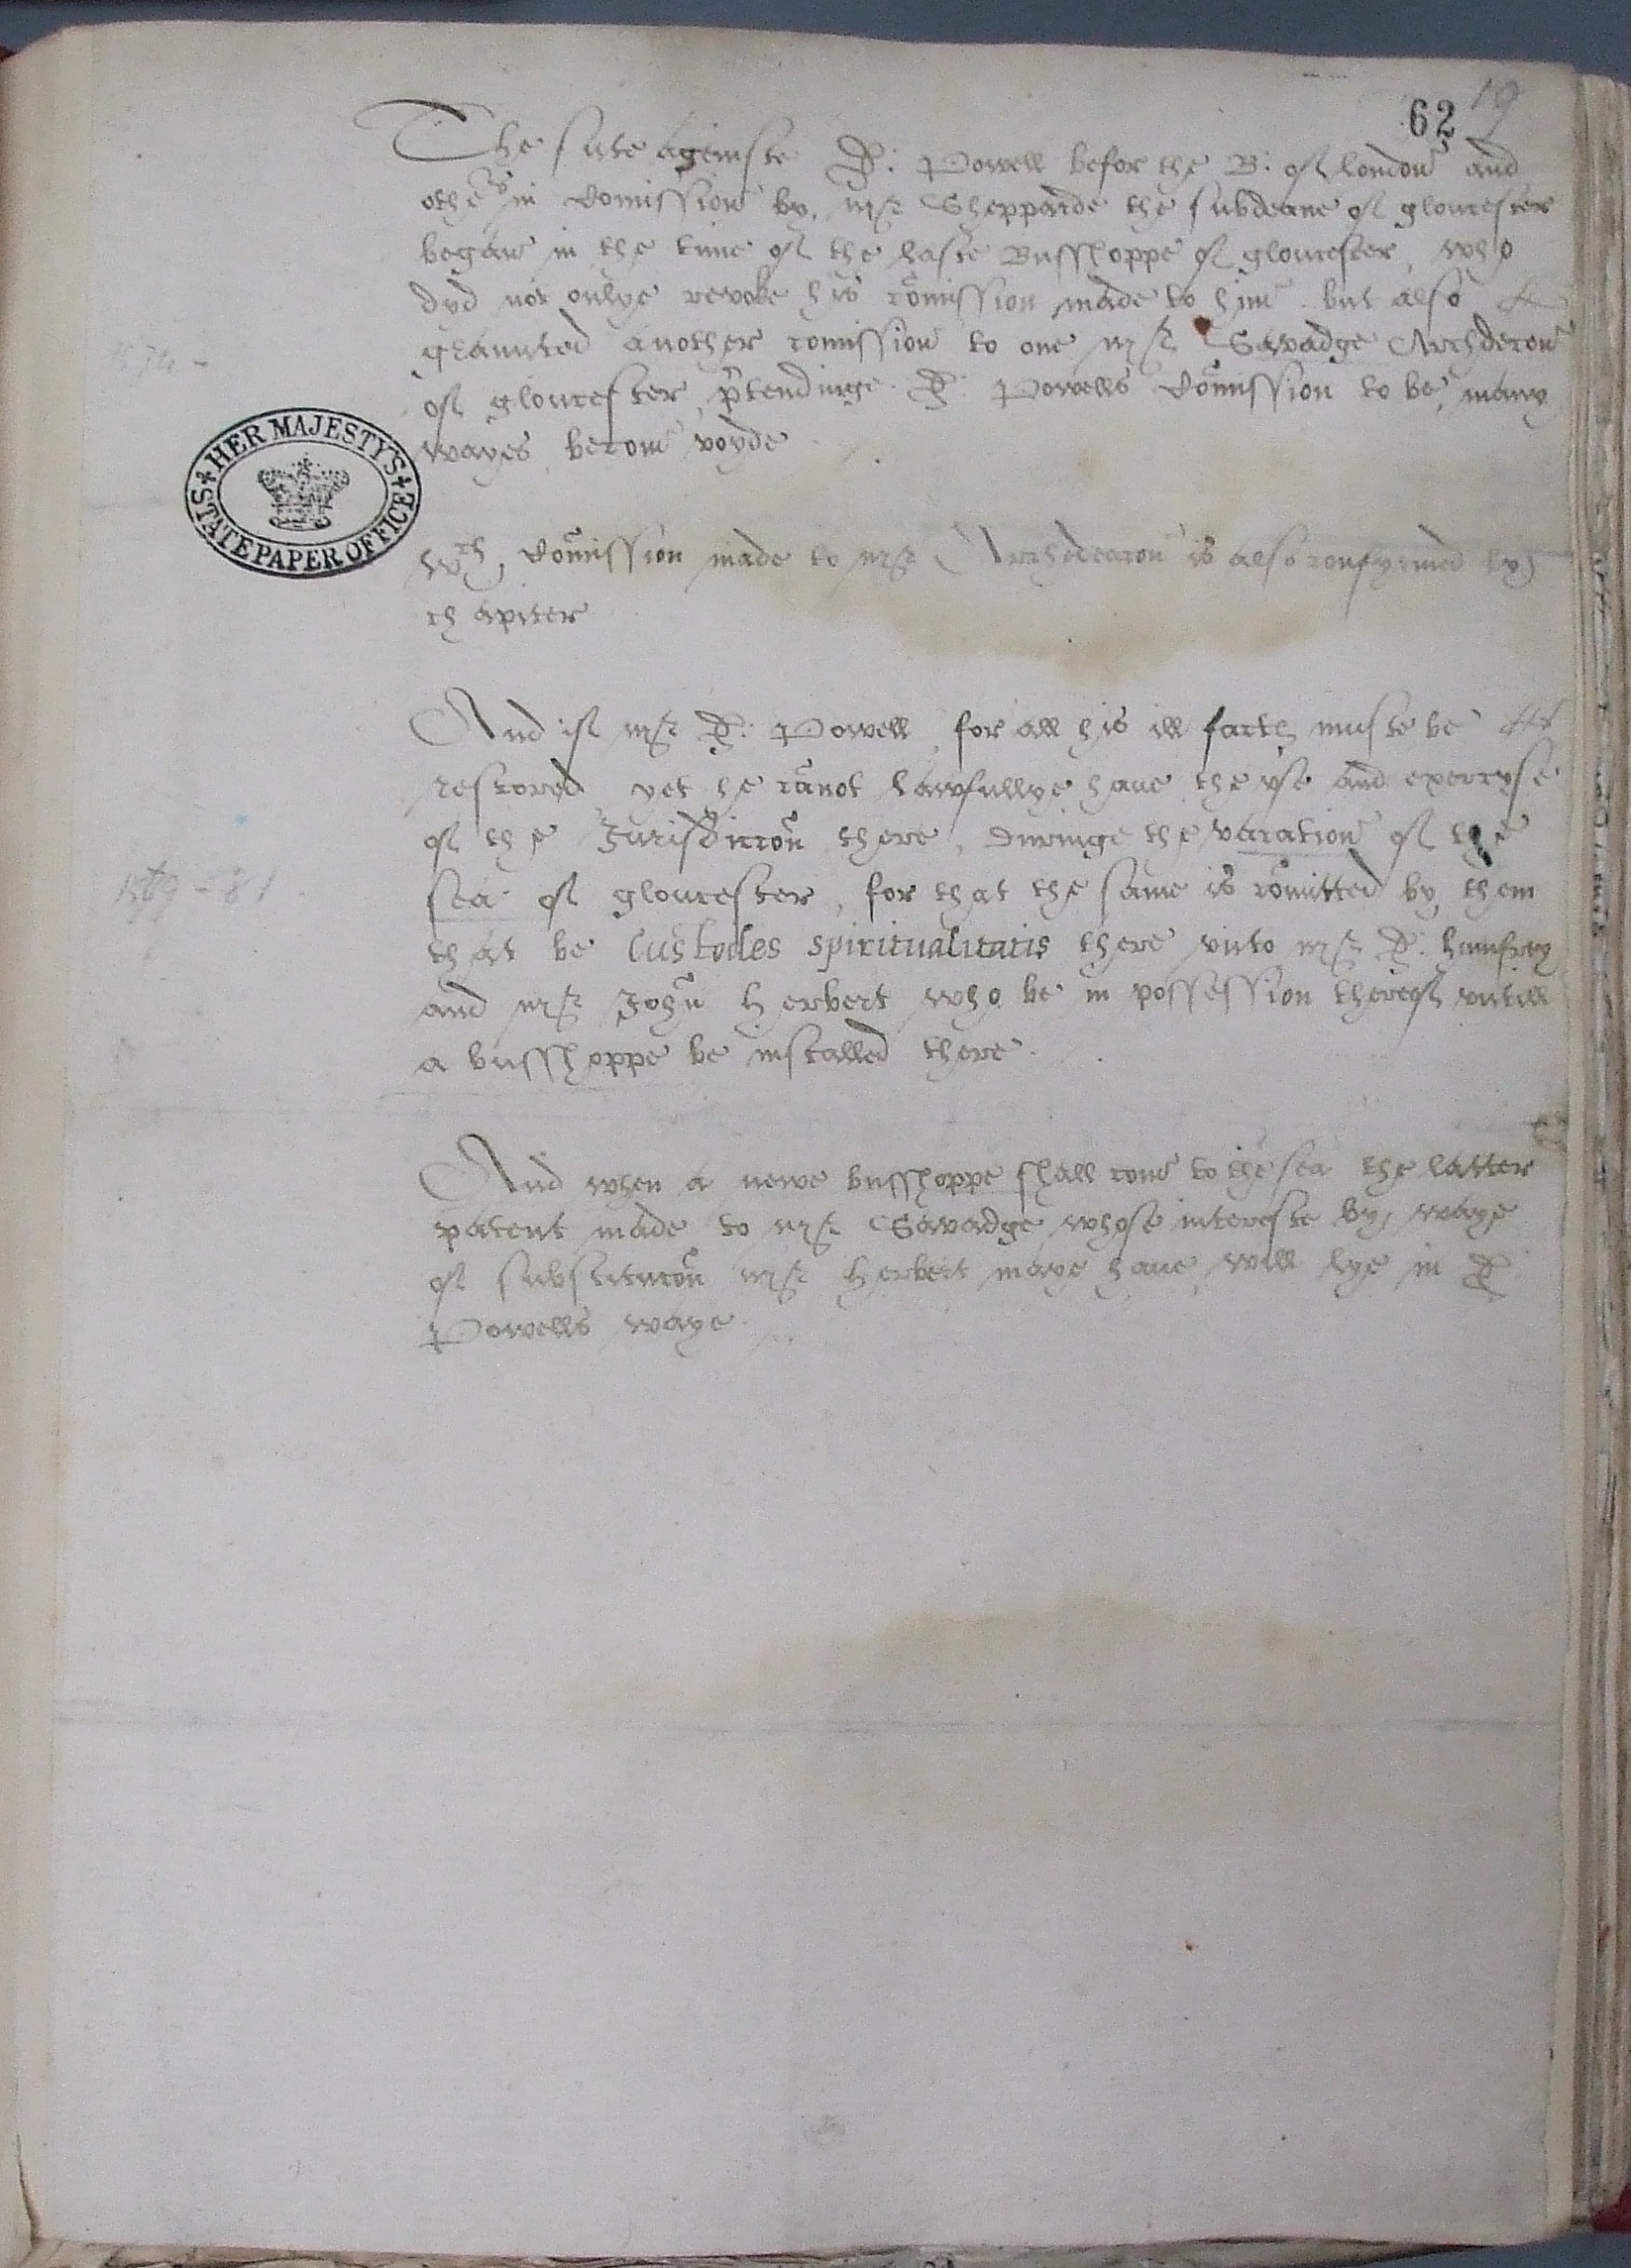 62 19
The sute ageinste D: Powell befor the B: of london and
others in Comission by Mr Shepparde the subdeane of glocester
began in the time of the laste Busshoppe of gloucester, who
dyd not onlye revoke his comission made to him but also
graunted another comission to one Mr Savadge Archdecon
of gloucester, p̃tendinge D: Powells Comission to be many
wayes becom voyde
HER MAJESTY'S STATE PAPER OFFICE
wch Comission made to Mr Archdeacon is also confyrmed by
chapiter
And if Mr D: Powell, for all his ill factes muste be
restored yet he cãnot lawfullye haue the vse and exercyse
of the Jurisdiccõn there, duringe the vacation of the
sea of gloucester, for that the same is cõmitted by them
that be Custodes spiritualitatis there vnto Mr D. humfrey
and Mr John Herbert who be in possession thereof vntill
a busshoppe be installed there
1579-81
And when a newe busshoppe shall come to the sea the latter
patent made to Mr Savadge whose intereste by waye
of substitucõn Mr Herbert maye haue will lye in D
Powells waye